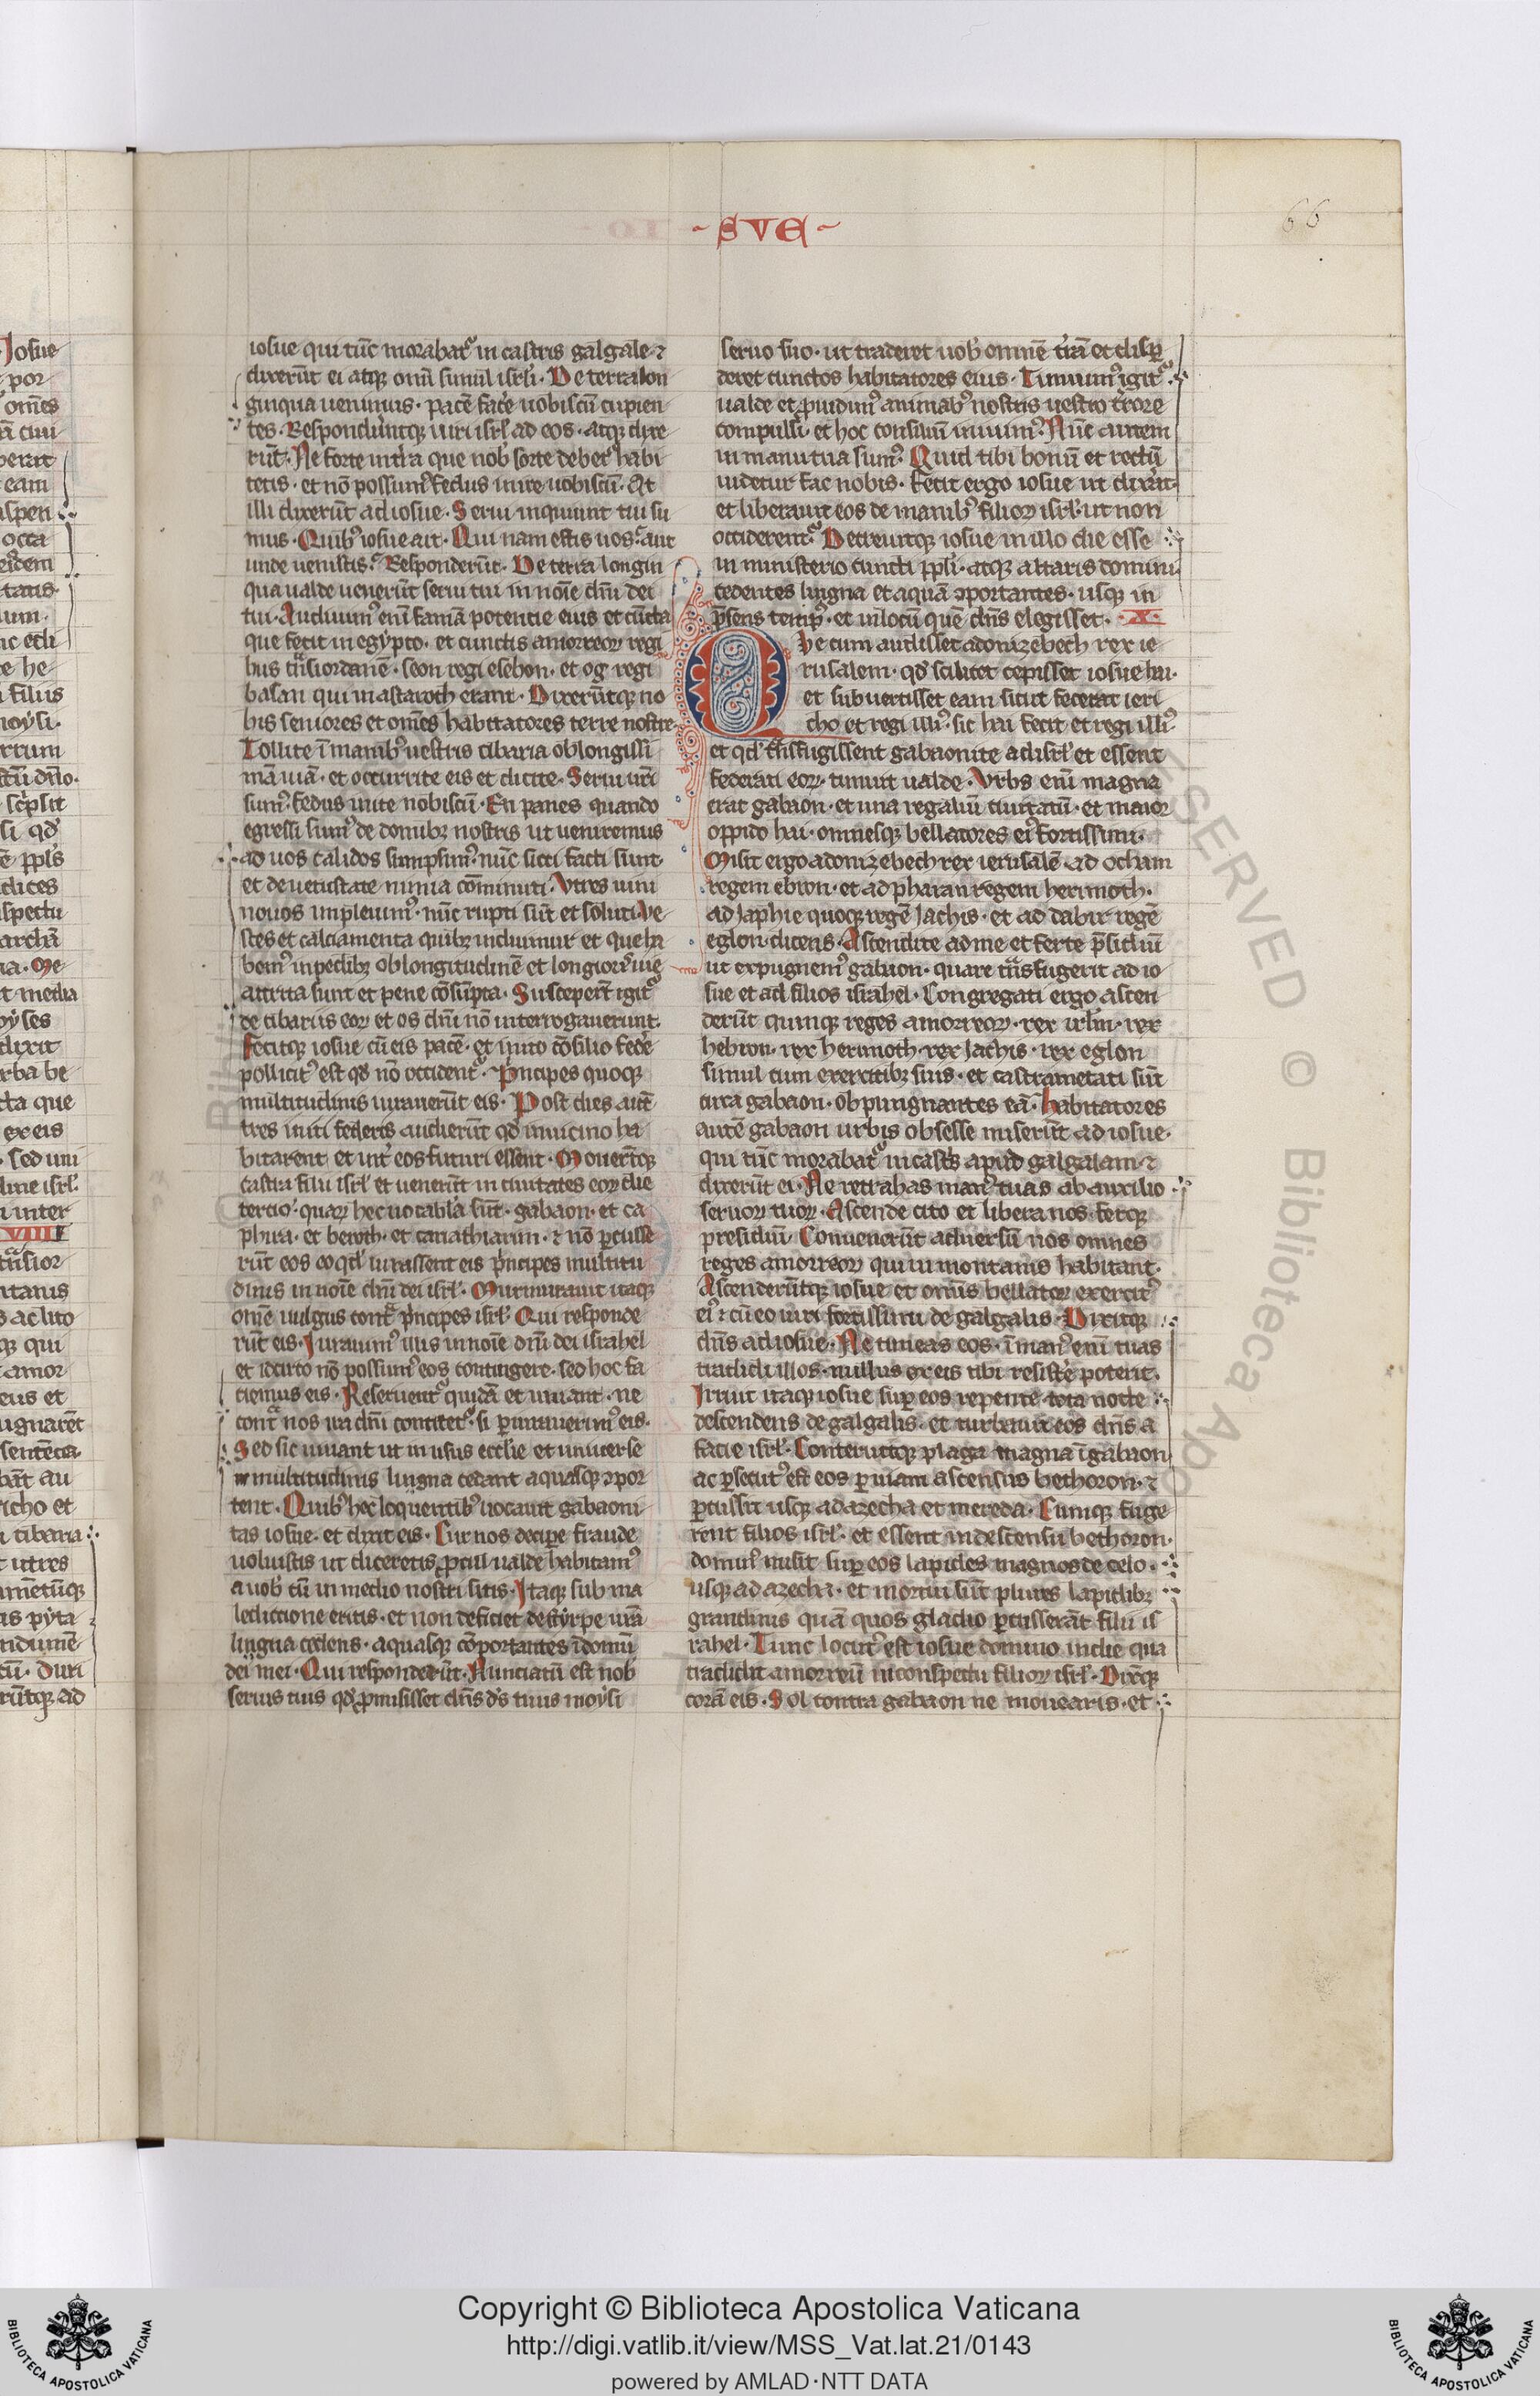 - SVE -
66
iosue qui tūc morabat᷑ in castris galgale ⁊
dixerūt ei atq; om̄i simul isrl̓i. De terra lon
ginqua uenimus. pacē fac̓e uobiscū cupien
tes. Responderūtq; uiri isrl̓ ad eos. atq; dixe
rūt. Ne forte in t̓ra que nob̓ sorte debet᷑ habi
tetis. et nō possum᷒ fedus inire uobiscū. At
illi dixerūt ad iosue. Serui inquiunt tui su
mus. Quib᷒ iosue ait. Qui nam estis uos. aut
unde uenistis. Responderūt. De terra longin
qua ualde uenerūt serui tui in noīe dn̄i dei
tui. Audiuim᷒ enī famā potentie eius et cūcta
que fecit in egypto. et cunctis amorreoꝝ regi
bus trāsiordanē. seon regi esebon. et og regi
basan qui in astaroth erant. Dixerūtq; no
bis seniores et om̄es habitatores terre nostre.
Tollite ī manib᷒ uestris cibaria ob longissi
mā uiā. et occurrite eis et dicite. Serui ur̄i
sum᷒. fedus inite nobiscū. En panes quando
egressi sum᷒ de domibꝫ nostris ut ueniremus
ad uos calidos sumpsim᷒. nūc sicci facti sunt
et de uetustate nimia cōminuti. Vtres uini
nouos impleuim᷒. nūc rupti sūt et soluti. Ve
stes et calciamenta quibꝫ induimur et que ha
bem᷒ in pedibꝫ ob longitudinē et longiorē uie
attrita sunt et pene cōsūpta. Susceperūt igit᷑
de cibariis eoꝝ et os dn̄i nō interrogauerunt.
Fecitq; iosue cū eis pacē. et inito cōsilio fede
pollicit᷒ est qd̓ nō occident᷑. Pncipes quoq;
multitudinis iurauerūt eis. Post dies autē
tres initi federis audierūt qd̓ in uicino ha
bitarent et int̓ eos futuri essent. Mouerūtq;
castra filii isrl̓ et uenerūt in ciuitates eoꝝ die
tercio. quaꝝ hec uocabla sūt. gabaon. et ca
phira. et beroth. et cariathiarim. ⁊ nō ꝑcusse
rūt eos eo qd̓ iurassent eis pncipes multitu
dinis in noīe dn̄i dei isrl̓. Murmurauit itaq;
om̄e uulgus cont̄ pncipes isrl̓. Qui responde
rūt eis. Iurauim᷒ illis in noīe dn̄i dei israhel
et idcirco nō possum᷒ eos contingere. sed hoc fa
ciemus eis. Reseruent᷑ quidā et uiuant. ne
cont̄ nos ira dn̄i concitet᷑. si ꝑiurauerim᷒ eis.
Sed sic uiuant ut in usus eccl̓ie et uniuerse
multitudinis lingna cedant aquasq; ꝯpor
tent. Quib᷒ hec loquentib᷒ uocauit gabaoni
tas iosue. et dixit eis. Cur nos decipe fraude
uoluistis ut diceretis ꝓcul ualde habitam᷒
a uob̓ cū in medio nostri sitis. Itaq; sub ma
ledictione eritis. et non deficiet de styrpe urā
lingna cedens. aquasq; cōportantes ī domū
dei mei. Qui responderūt. Nunciatū est nob̓
seruis tuis qd̓ ꝓmisisset dn̄s d̓s tuus moysi
seruo suo. ut traderet uob̓ omnē t̓rā et dispꝑ
deret cunctos habitatores eius. Timuim᷒ igit᷑
ualde et ꝓuidim᷒ animab᷒ nostris uestro t̓rore
compulsi. et hoc consiliū iniuim᷒. Nūc autem
in manu tua sum᷒. Quid tibi bonū et rectū
uidetur fac nobis. Fecit ergo iosue ut dixerat
et liberauit eos de manib᷒ filioꝝ isrl̓. ut non
occiderent᷑. Decreuitq; iosue in illo die esse
in ministerio cuncti ppl̓i. atq; altaris domini
cedentes lingna et aquā ꝯportantes. usq; in
p̄sens temp᷒. et in locū quē dn̄s elegisset. X.
Qve cum audisset adonizebech rex ie
rusalem. qd̓ scilicet cepisset iosue hai.
et subuertisset eam sicut fecerat ieri
cho et regi illi᷒. sic hai fecit et regi illi᷒
et qd̓ trāsfugissent gabaonite ad isrl̓ et essent
federati eoꝝ. timuit ualde. Vrbs enī magna
erat gabaon. et una regaliū ciuitatū. et maior
oppido hai. omnesq; bellatores ei᷒ fortissimi.
Misit ergo adonizebech rex ierusalē ad ocham
regem ebron. et ad pharan regem herimoth.
ad iaphie quoq; regē lachis. et ad dabir regē
eglon dicens. Ascendite ad me et ferte p̄sidiū
ut expugnem᷒ gabaon. quare trāsfugerit ad io
sue et ad filios israhel. Congregati ergo ascen
derūt quinq; reges amorreoꝝ. rex irl̄m. rex
hebron. rex herimoth. rex lachis. rex eglon
simul cum exercitibꝫ suis. et castrametati sūt
circa gabaon. obpungnantes eā. Habitatores
autē gabaon urbis obsesse miserūt ad iosue.
qui tūc morabat᷑ in castis apud galgalam ⁊
dixerūt ei. Ne retrahas man᷒ tuas ab auxilio
seruoꝝ tuoꝝ. Ascende cito et libera nos. fetq;
presidiū. Conuenerūt aduersū nos omnes
reges amorreoꝝ qui in montanis habitant.
Ascenderūtq; iosue et om̄is bellatoꝝ exercit᷒
ei᷒ ⁊ cū eo uiri fortissimi de galgalis. Dixitq;
dn̄s ad iosue. Ne timeas eos. ī man᷒ enī tuas
tradidi illos. nullus ex eis tibi resist̓e poterit.
Irruit itaq; iosue sup eos repente tota nocte
descendens de galgalis. et turbauit eos dn̄s a
facie isrl̓. Conteruitq; plaga magna ī gabaon
ac ꝑsecut᷒ est eos ꝑ uiam ascensus bethoron. ⁊
ꝑcussit usq; ad azecha et mereda. Cumq; fuge
rent filios isrl̓. et essent in descensu bethoron.
domin᷒ misit sup eos lapides magnos de celo.
usq; ad azecha. et mortui sūt plures lapidibꝫ
grandinis quā quos gladio ꝑcusserāt filii is
rahel. Tunc locut᷒ est iosue domino in die qua
tradidit amorreū in conspectu filioꝝ isrl̓. Dixitq;
corā eis. Sol contra gabaon ne mouearis. et
Copyright © Biblioteca Apostolica Vaticana
http://digi.vatlib.it/view/MSS_Vat.lat.21/0143
powered by AMLAD·NTT DATA
BIBLIOTECA APOSTOLICA VATICANA
BIBLIOTECA APOSTOLICA VATICANA